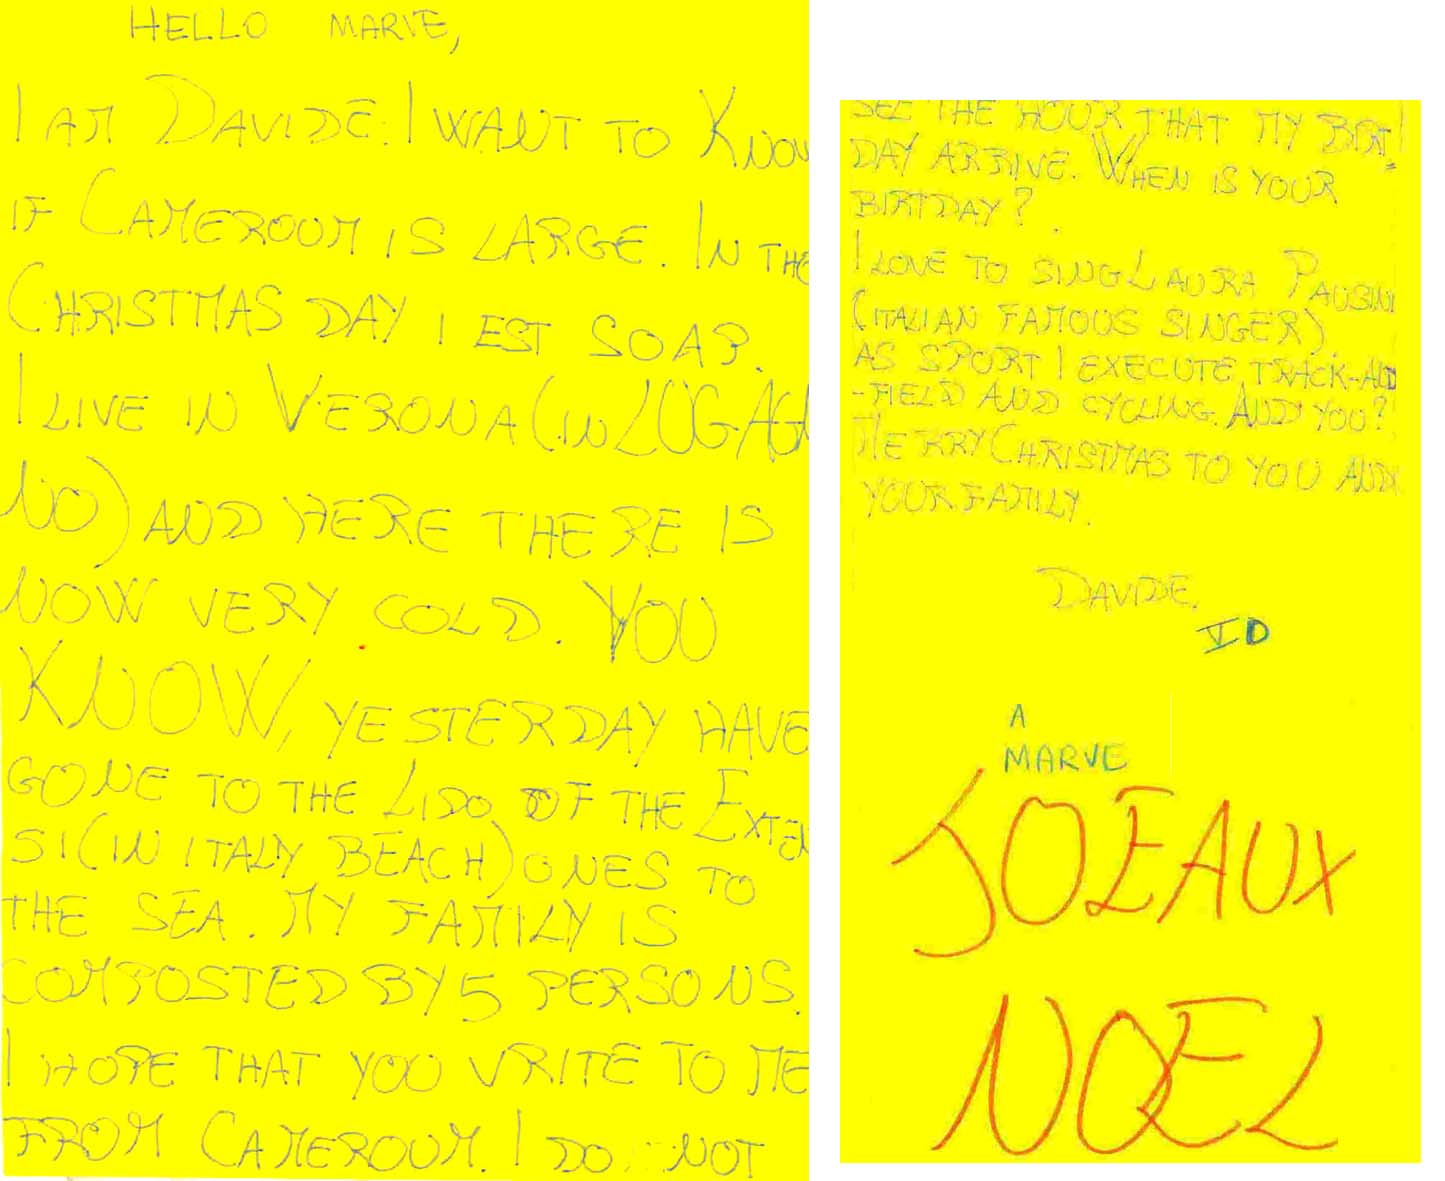 HELLO MARVE,
I AM DAVIDE. I WANT TO KNOW
IF CAMEROOM IS LARGE. IN THE
CHRISTMAS DAY I EST SOAP.
I LIVE IN VERONA (IN LUGAGA
NO) AND HERE THERE IS
NOW VERY COLD. YOU
KNOW, YESTERDAY HAVE
GONE TO THE LIDO OF THE EXTEN
SI (IN ITALY BEACH) ONES TO
THE SEA. MY FAMILY IS
COMPOSTED BY 5 PERSONS.
I HOPE THAT YOU VRITE TO ME
FROM CAMEROUM. I DO NOT
SEE THE HOUR THAT MY BIRT=
DAY ARRIVE. WHEN IS YOUR
BIRTDAY?
I LOVE TO SING LAURA PAUSINI
(ITALIAN FAMOUS SINGER).
AS SPORT I EXECUTE TRACK-AND
-FIELD AND CYCLING. AND YOU?
MERRY CHRISTMAS TO YOU AND
YOUR FAMILY.
DAVIDE,
VD
A
MARVE
JOEAUX
NOEL